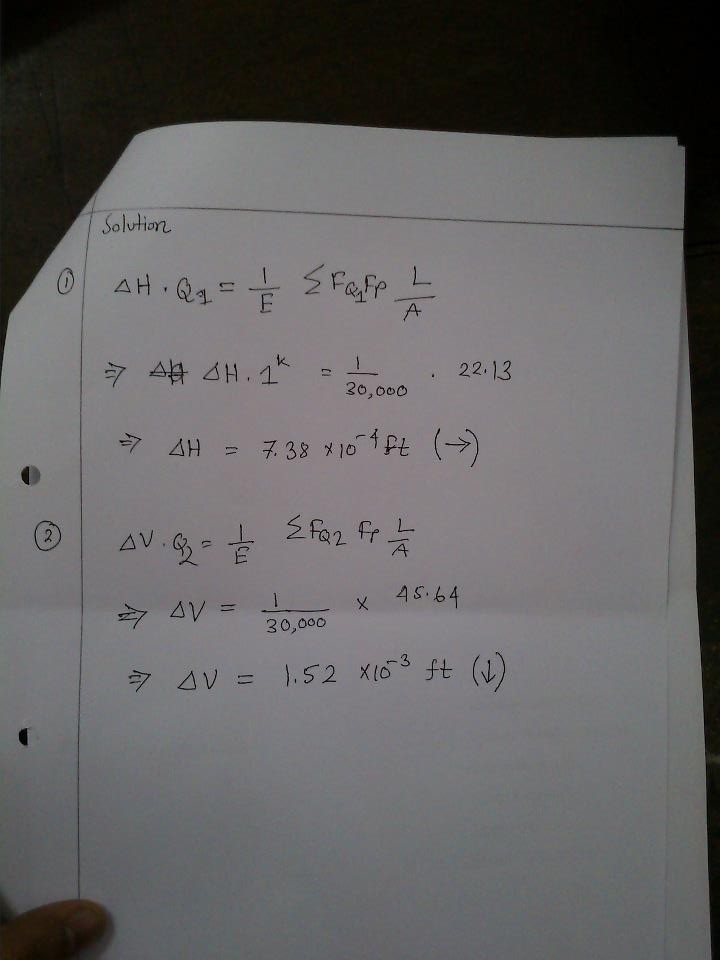 Solution
① ΔH · Q₁ = 1/E ΣF_Q₁ Fp L/A
⇒ ΔH · 1ᵏ = 1/30,000 · 22.13
⇒ ΔH = 7.38 ×10⁻⁴ ft (→)
② ΔV · Q₂ = 1/E ΣF_Q2 Fp L/A
⇒ ΔV = 1/30,000 × 45.64
⇒ ΔV = 1.52 ×10⁻³ ft (↓)